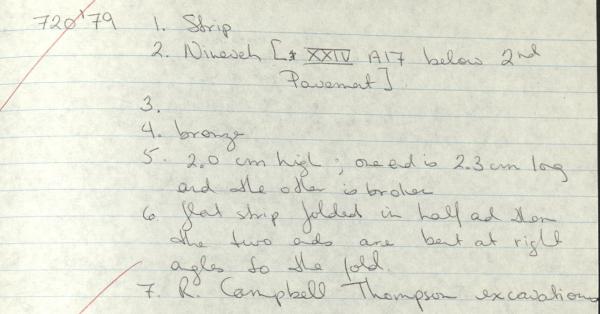 720'79 1. Strip
2. Nineveh [* XXIV A17 below 2nd
Pavement]
3.
4. bronze
5. 2.0 cm high ; one end is 2.3 cm long
and the other is broken
6. flat strip folded in half ad then
the two ends are bent at right
agles to the fold.
7. R. Campbell Thompson excavations